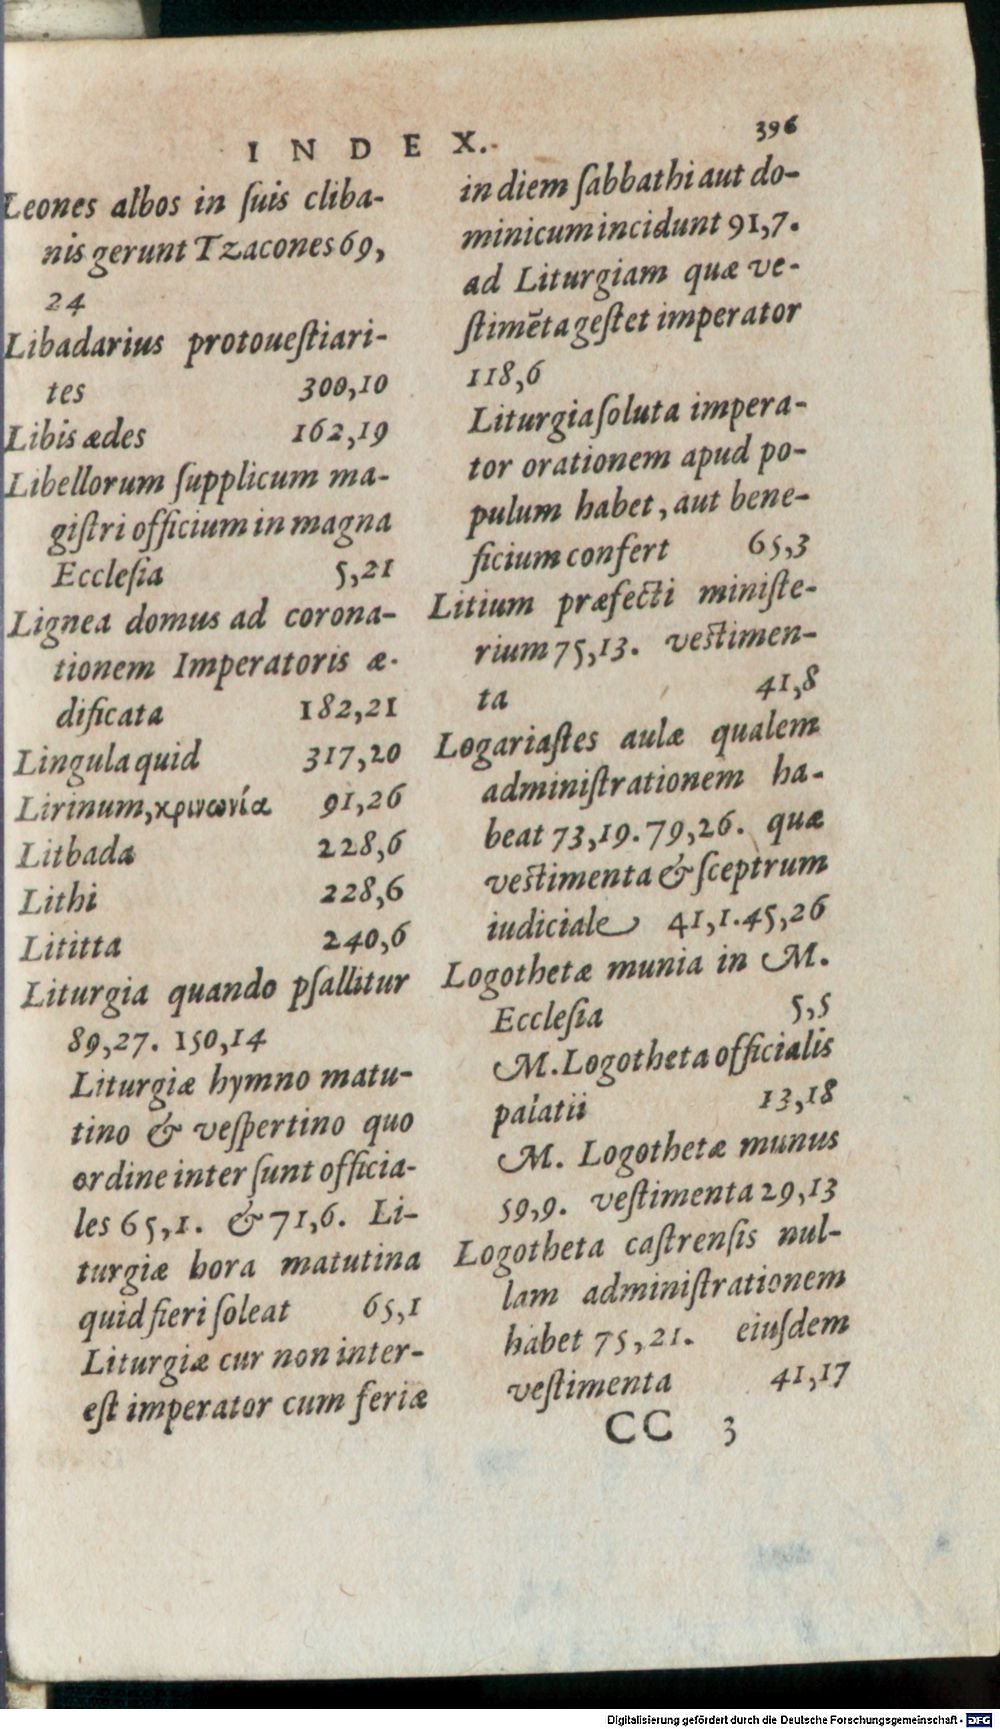 396
INDEX.
Leones albos in ſuis cliba-
nis gerunt Tzacones 69,
24
Libadarius protoueſtiari-
tes 300,10
Libis ædes 162,19
Libellorum ſupplicum ma-
giſtri officium in magna
Eccleſia 5,21
Lignea domus ad corona-
tionem Imperatoris æ-
dificata 182,21
Lingula quid 317,20
Lirinum, κρινωνία 91,26
Litbada 228,6
Lithi 228,6
Lititta 240,6
Liturgia quando pſallitur
89,27. 150,14
Liturgiæ hymno matu-
tino & veſpertino quo
ordine inter ſunt officia-
les 65,1. & 71,6. Li-
turgiæ hora matutina
quid fieri ſoleat 65,1
Liturgiæ cur non inter-
eſt imperator cum feriæ
in diem ſabbathi aut do-
minicum incidunt 91,7.
ad Liturgiam quæ ve-
ſtimēta geſtet imperator
118,6
Liturgia ſoluta impera-
tor orationem apud po-
pulum habet, aut bene-
ficium confert 65,3
Litium præfecti miniſte-
rium 75,13. veſtimen-
ta 41,8
Logariaſtes aulæ qualem
adminiſtrationem ha-
beat 73,19. 79,26. quæ
veſtimenta & ſceptrum
iudiciale 41,1. 45,26
Logothetæ munia in M.
Eccleſia 5,5
M. Logotheta officialis
palatii 13,18
M. Logothetæ munus
59,9. veſtimenta 29,13
Logotheta caſtrenſis nul-
lam adminiſtrationem
habet 75,21. eiuſdem
veſtimenta 41,17
CC 3
Digitalisierung gefördert durch die Deutsche Forschungsgemeinschaft - DFG